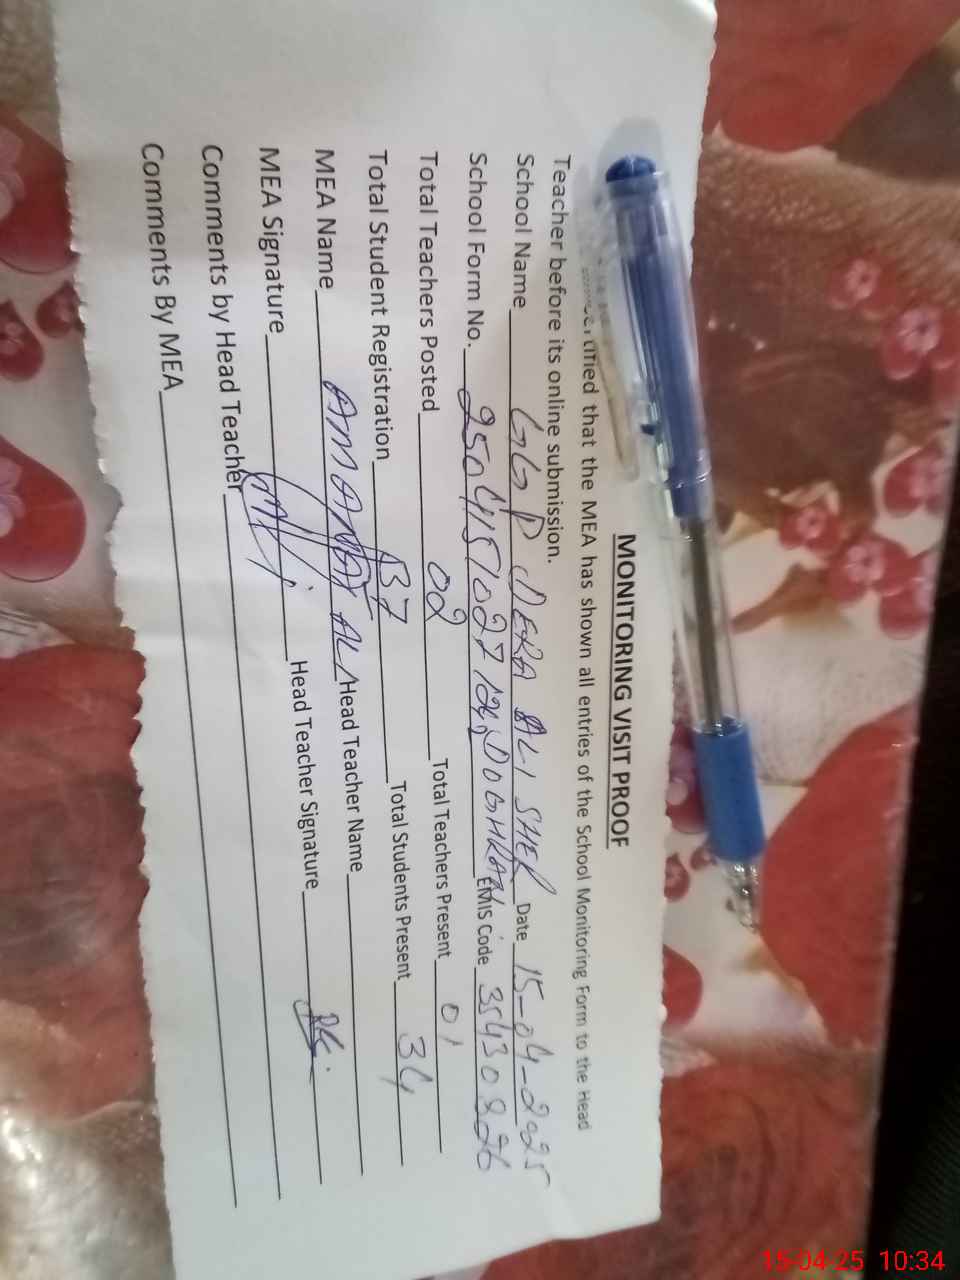 MONITORING VISIT PROOF
that the MEA has shown all entries of the School Monitoring Form to the Head
Teacher before its online submission.
School Name GGP DERA ALI SHER Date 15-04-2025
School Form No. EMIS Code 35430826
Total Teachers Posted 02 Total Teachers Present 01
Total Student Registration 37 Total Students Present 34
MEA Name ALI Head Teacher Name
MEA Signature Head Teacher Signature
Comments by Head Teacher
Comments By MEA
15-04-25 10:34